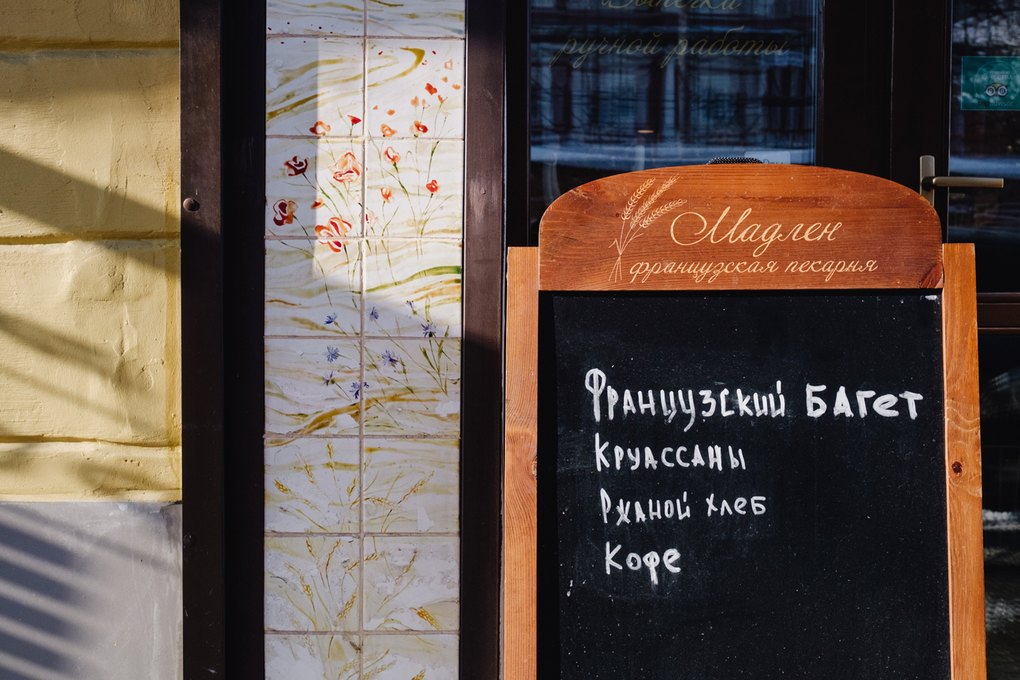 ручной работы
Мадлен
французская пекарня
Французский Багет
Круассаны
Ржаной хлеб
Кофе